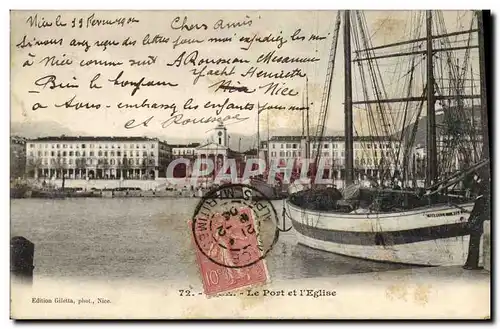 Nice le 22 Fevrier 1904 Chers Amis
Si vous avez reçu des lettres pour moi expediez les moi
à Nice comme suit A Rousseau Messier
Yacht Henriette
Bien le bonjour Nice
à tous embrassez les enfants pour moi
et A Rousseau
72. - NICE. - Le Port et l'Eglise
Edition Giletta, phot., Nice.
ALPES MARITIMES
10